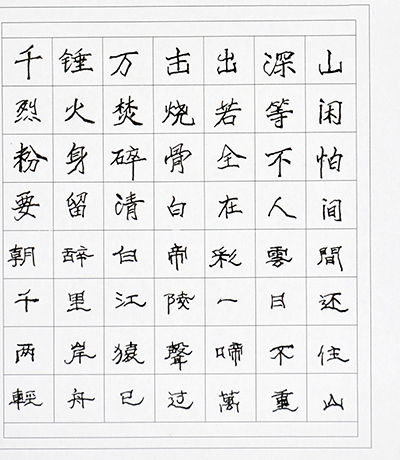 千锤万击出深山
烈火焚烧若等闲
粉身碎骨全不怕
要留清白在人间
朝辞白帝彩雲間
千里江陵一日还
两岸猿聲啼不住
輕舟已过萬重山